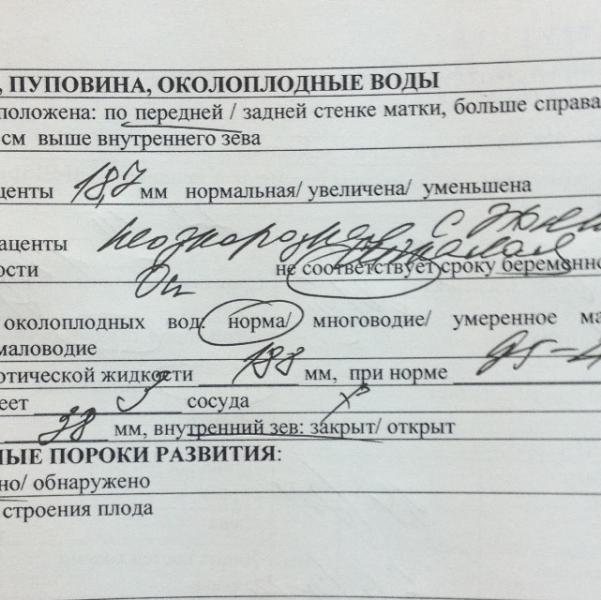 , ПУПОВИНА, ОКОЛОПЛОДНЫЕ ВОДЫ
положена: по передней / задней стенке матки, больше справа
см выше внутреннего зева
центы 18,7 мм нормальная/ увеличена/ уменьшена
аценты неоднородная с
ости не соответствует сроку беременно
околоплодных вод: норма/ многоводие/ умеренное ма
маловодие
отической жидкости 188 мм, при норме 95-
еет 3 сосуда
38 мм, внутренний зев: закрыт/ открыт
НЫЕ ПОРОКИ РАЗВИТИЯ:
но/ обнаружено
строения плода